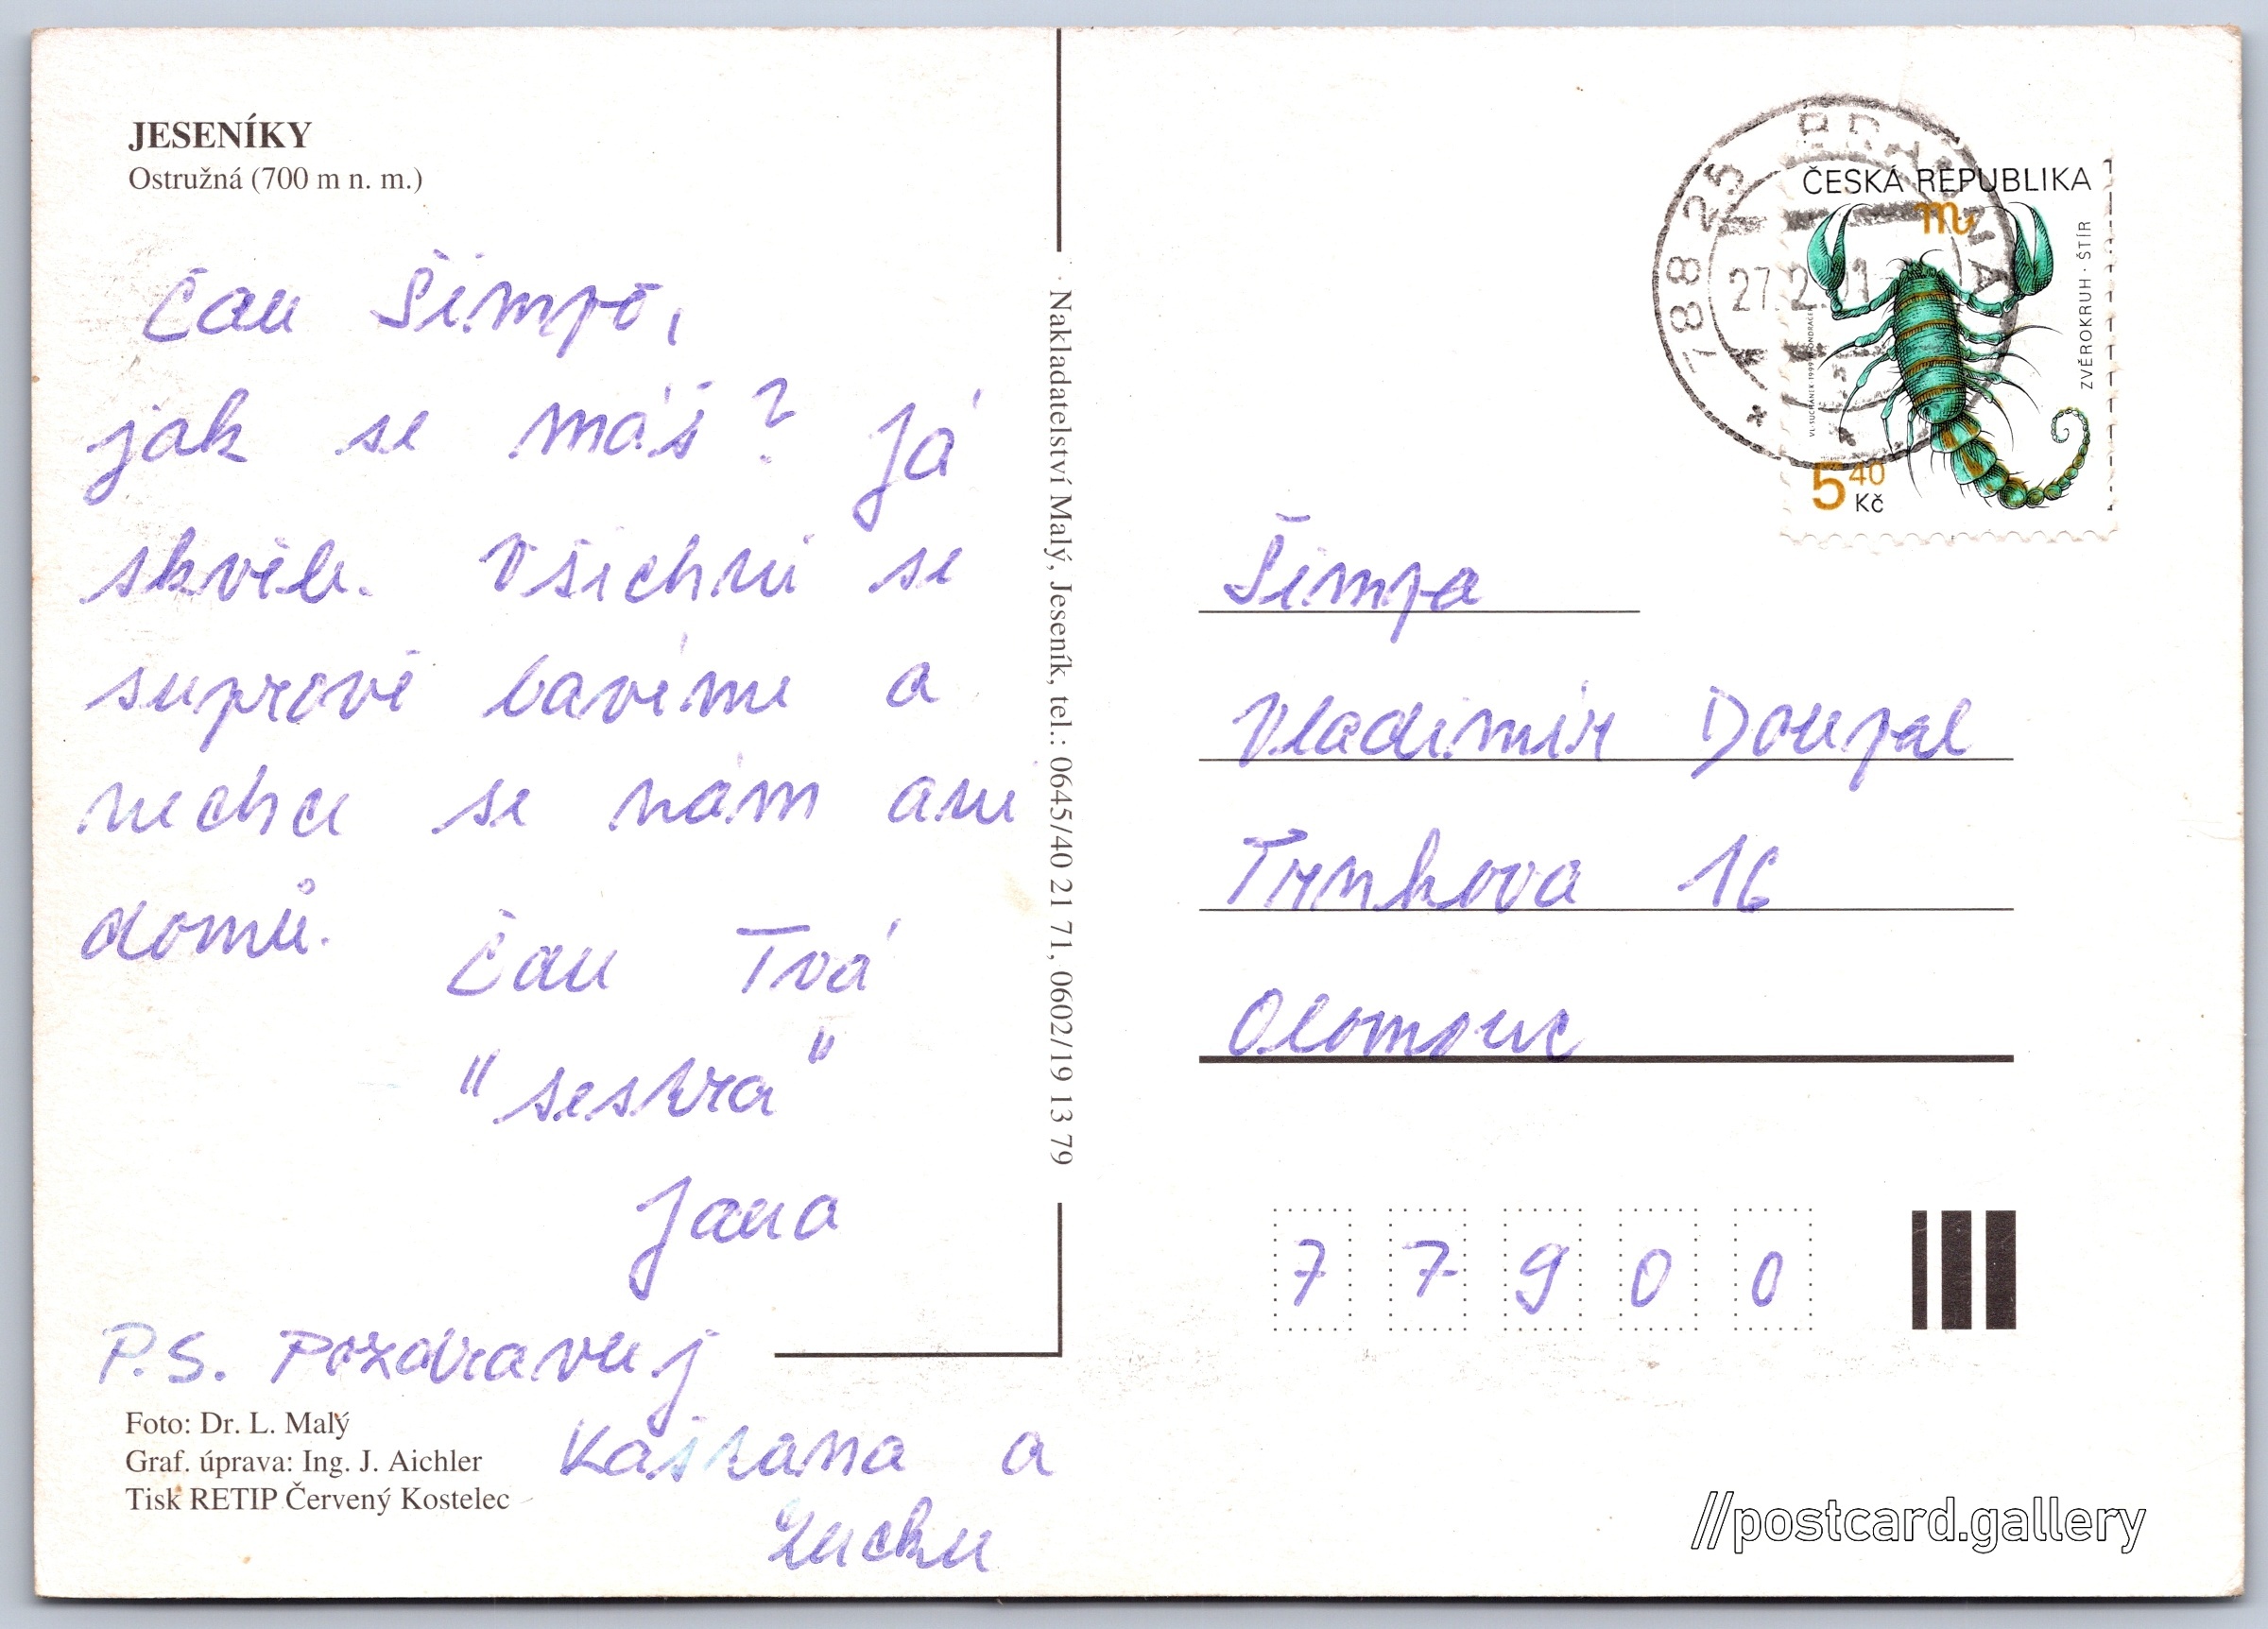 JESENÍKY
Ostružná (700 m n. m.)
Čau Šimpo,
jak se máš? Já
skvěle. Všichni se
suprově bavíme a
nechce se nám ani
domů.
Čau Tvá
"sestra"
Jana
P.S. Pozdravuj
Kaštana a
Lucku
Foto: Dr. L. Malý
Graf. úprava: Ing. J. Aichler
Tisk RETIP Červený Kostelec
Nakladatelství Malý, Jeseník, tel.: 0645/40 21 71, 0602/19 13 79
788 25 BRANNÁ
27.2.01
ČESKÁ REPUBLIKA
ZVĚROKRUH · ŠTÍR
5 40 Kč
Šimpa
Vladimír Doupal
Trnkova 16
Olomouc
7 7 9 0 0
//postcard.gallery